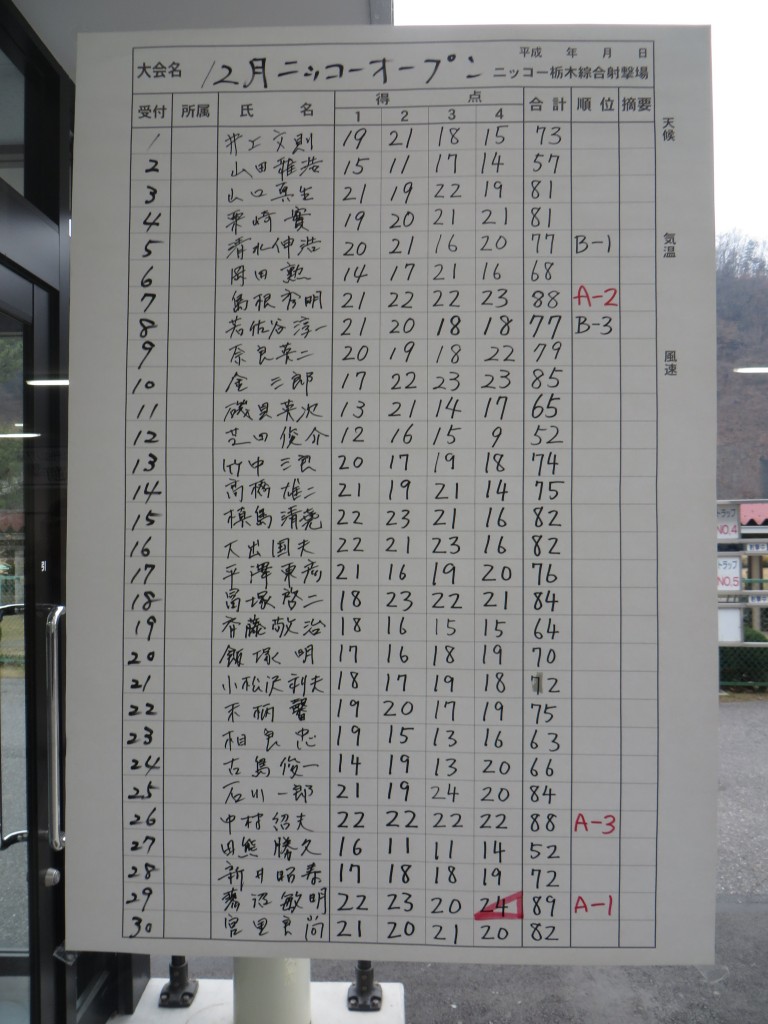 平成 年 月 日
大会名 12月ニッコーオープン ニッコー栃木綜合射撃場
受付 所属 氏 名 得 点 合計 順位 摘要
1 2 3 4
天候
気温
風速
1 井上文則 19 21 18 15 73
2 山田雅浩 15 11 17 14 57
3 山口真生 21 19 22 19 81
4 栗崎實 19 20 21 21 81
5 清水伸浩 20 21 16 20 77 B-1
6 岡田勲 14 17 21 16 68
7 島根秀明 21 22 22 23 88 A-2
8 若佐谷淳一 21 20 18 18 77 B-3
9 奈良英二 20 19 18 22 79
10 金三郎 17 22 23 23 85
11 磯貝英次 13 21 14 17 65
12 芝田俊介 12 16 15 9 52
13 竹中三 20 17 19 18 74
14 高橋雄二 21 19 21 14 75
15 槙島清尭 22 23 21 16 82
16 大出国夫 22 21 23 16 82
17 平澤東彦 21 16 19 20 76
18 冨塚啓二 18 23 22 21 84
19 斉藤敬治 18 16 15 15 64
20 飯塚明 17 16 18 19 70
21 小松沢利夫 18 17 19 18 72
22 末柄馨 19 20 17 19 75
23 相良忠 19 15 13 16 63
24 古島俊一 14 19 13 20 66
25 石川一郎 21 19 24 20 84
26 中村紹夫 22 22 22 22 88 A-3
27 田熊勝久 16 11 11 14 52
28 新井昭泰 17 18 18 19 72
29 沼敏明 22 23 20 24 89 A-1
30 宮里良尚 21 20 21 20 82
トラップ
NO.4
トラップ
NO.5